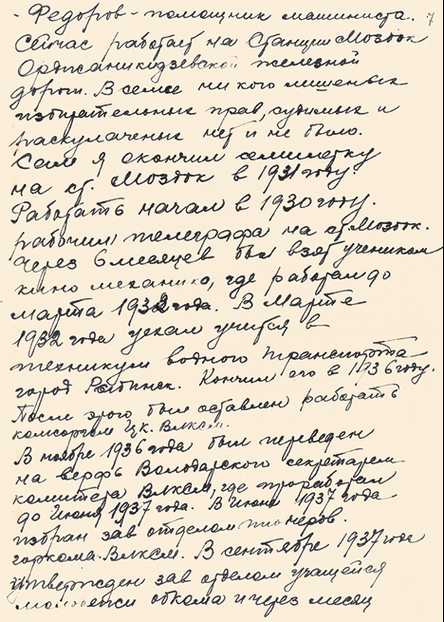 - Федоров - помощник машиниста. 7
Сейчас работает на Станции Моздок
Орджаникидзевской железной
дороги. В семье ни кого лишеных
избирательных прав, судимых и
раскулаченых нет и не было.
Сам я окончил семилетку
на ст. Моздок в 1931 году.
Работать начал в 1930 году.
рабочим телеграфа на ст. Моздок.
Через 6 месяцев был взят учеником
кино механика, где работал до
марта 1932 года. В Марте
1932 года уехал учится в
техникум водного транспорта
город Рыбинск. Кончил его в 1936 году.
После этого был оставлен работать
комсоргом Ц.К. Влксм.
В ноябре 1936 года был переведен
на верфь Володарского секретарем
комитета Влксм, где проработал
до Июня 1937 года. В Июне 1937 года
избран зав отделом пионеров.
горкома Влксм. В сентябре 1937 года
утвержден зав отделом учащейся
молодежи обкома и через месяц